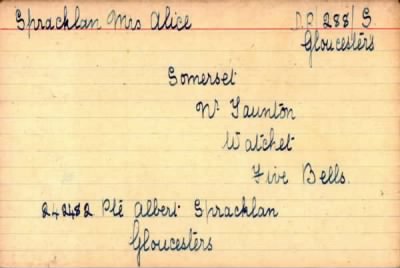 Spracklan Mrs Alice DR 288/S
Gloucesters
Somerset
Nr Taunton
Watchet
Five Bells.
242482 Pte Albert Spracklan
Gloucesters